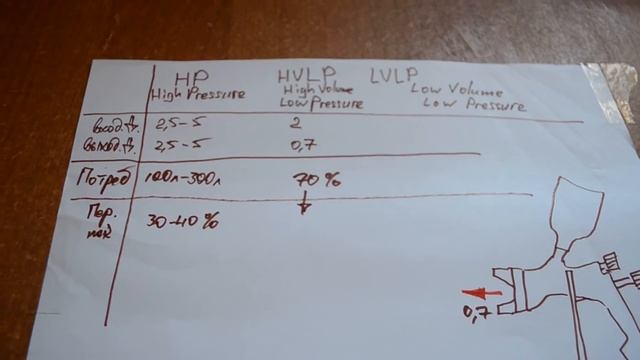 HP HVLP LVLP
High Pressure High Volume Low Volume
Low Pressure Low Pressure
вход.д. 2,5-5 2
выход.д. 2,5-5 0,7
Потреб 100л-300л 70%
Пер. 30-40%
мак
0,7